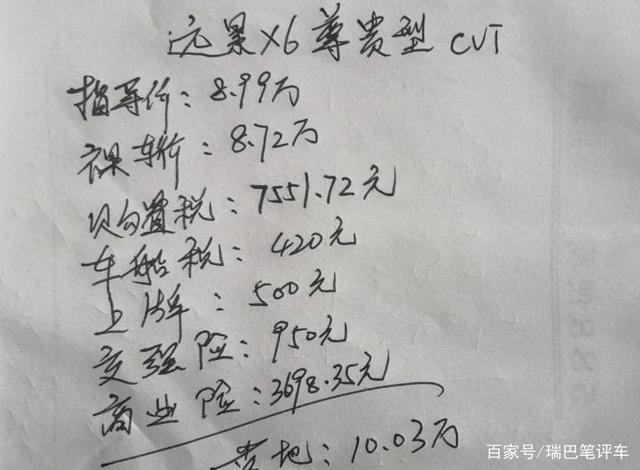 远景X6尊贵型 CVT
指导价：8.99万
裸车价：8.72万
购置税：7551.72元
车船税：420元
上牌：500元
交强险：950元
商业险：3698.35元
落地：10.03万
百家号/瑞巴笔评车